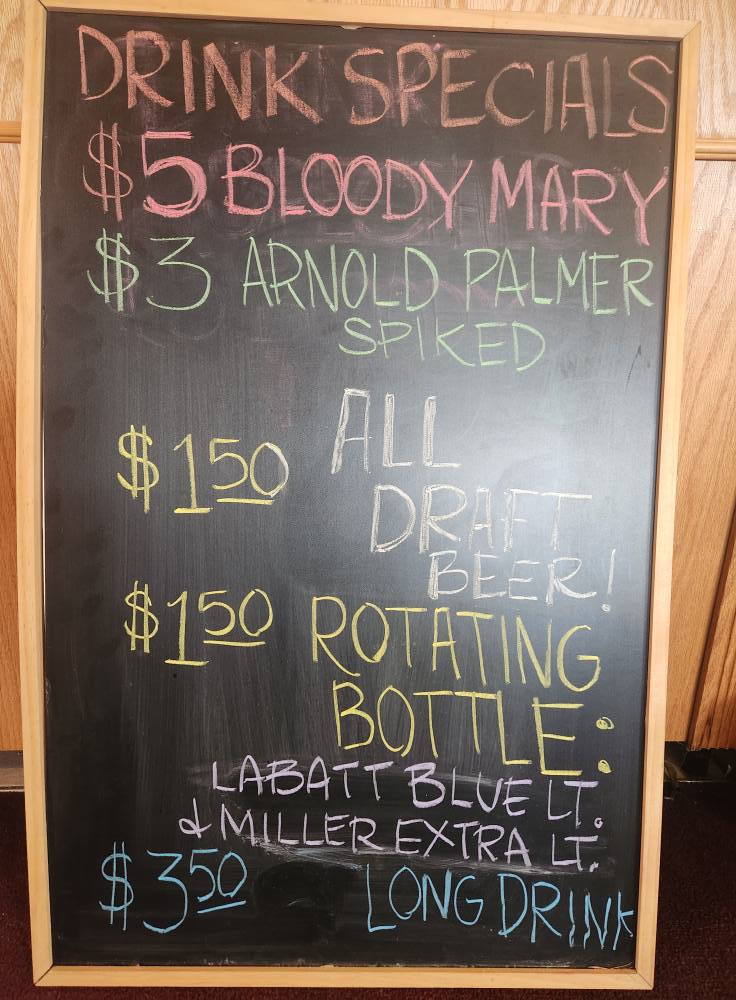 DRINK SPECIALS
$5 BLOODY MARY
$3 ARNOLD PALMER
SPIKED
$1 50 ALL
DRAFT
BEER!
$1 50 ROTATING
BOTTLE:
LABATT BLUE LT.
& MILLER EXTRA LT.
$3 50 LONG DRINK